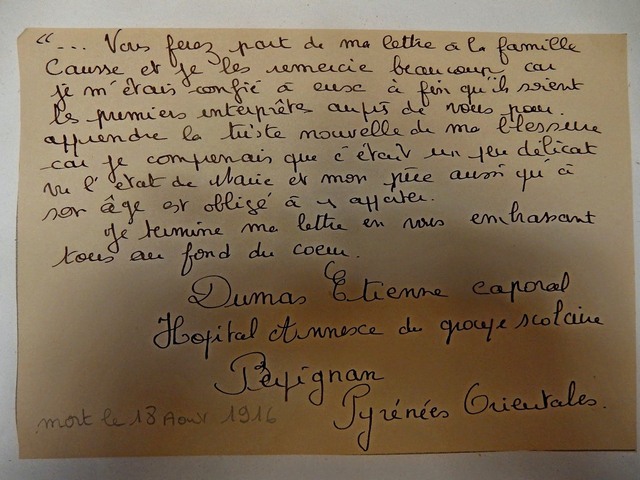 "... Vous ferez part de ma lettre à la famille
Causse et je les remercie beaucoup car
je m'étais confié à eux à fin qu'ils soient
les premiers interprêtes auprès de vous pour
apprendre la triste nouvelle de ma blessure
car je comprenais que c'était un peu délicat
vu l'état de Marie et mon père aussi qu'à
son âge est obligé à
je termine ma lettre en vous embrassant
tous au fond du coeur.
Dumas Etienne caporal
Hopital Annexe du groupe scolaire
Perpignan
Pyrénées Orientales.
mort le 18 Aout 1916